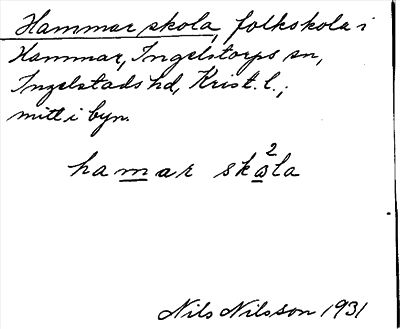 Hammar skola, folkskola i
Hammar, Ingelstorps sn,
Ingelstads hd, Krist. l.;
mitt i byn.
hamar skω²la
Nils Nilsson 1931